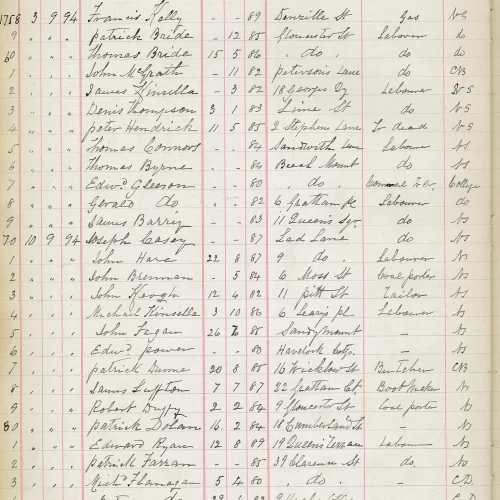 1758 3 9 94 Francis Kelly - - 89 Denzille St Gas NS
9 " " " Patrick Bride - 12 85 Gloucester St Labourer do
60 " " " Thomas Bride 15 5 86 do do do
1 " " " John McGrath - 11 82 Petersons Lane do CB
2 " " " James Kinsella - 3 82 18 Georges Labourer NS
3 " " " Denis Thompson 3 1 83 Lime St do NS
4 " " " Peter Hendrick 11 5 85 2 Stephens Lane Fr dead NS
5 " " " Thomas Connors - - 84 Sandwith Lane Labourer NS
6 " " " Thomas Byrne - - 84 Beech Mount do NS
7 " " " Edwd Gleeson - - 80 do College
8 " " " Gerald do - - 82 6 Grattan pl Labourer do
9 " " " James Barry - - 83 11 Queen's Sqr do NS
70 10 9 94 Joseph Casey - - 87 Lad Lane do NS
1 " " " John Hare 22 8 87 9 do Labourer NS
2 " " " John Brennan - 5 84 6 Moss St Coal porter NS
3 " " " John Keogh 12 4 82 11 pitt St Tailor NS
4 " " " Michael Kinsella 3 10 86 6 Leary's pl Labourer NS
5 " " " John Fagan 26 7 85 Sandymount - NS
6 " " " Edwd power - - 80 Cottgs. - NS
7 " " " Patrick Dunne 20 8 85 16 Wicklow St Butcher CB
8 " " " James Luffton 7 7 87 22 Grattan Ct. Bootmaker NS
9 " " " Robert Duffy 2 2 84 9 Gloucester St Coal porter NS
80 " " " Patrick Dolan 16 2 84 18 Cumberland St - NS
1 " " " Edward Ryan 12 8 89 19 Queen's Terrace Labourer NS
2 " " " Patrick Farran - - 85 39 Clarence St do NS
3 " " " Michl Flanagan 5 4 80 do - CB